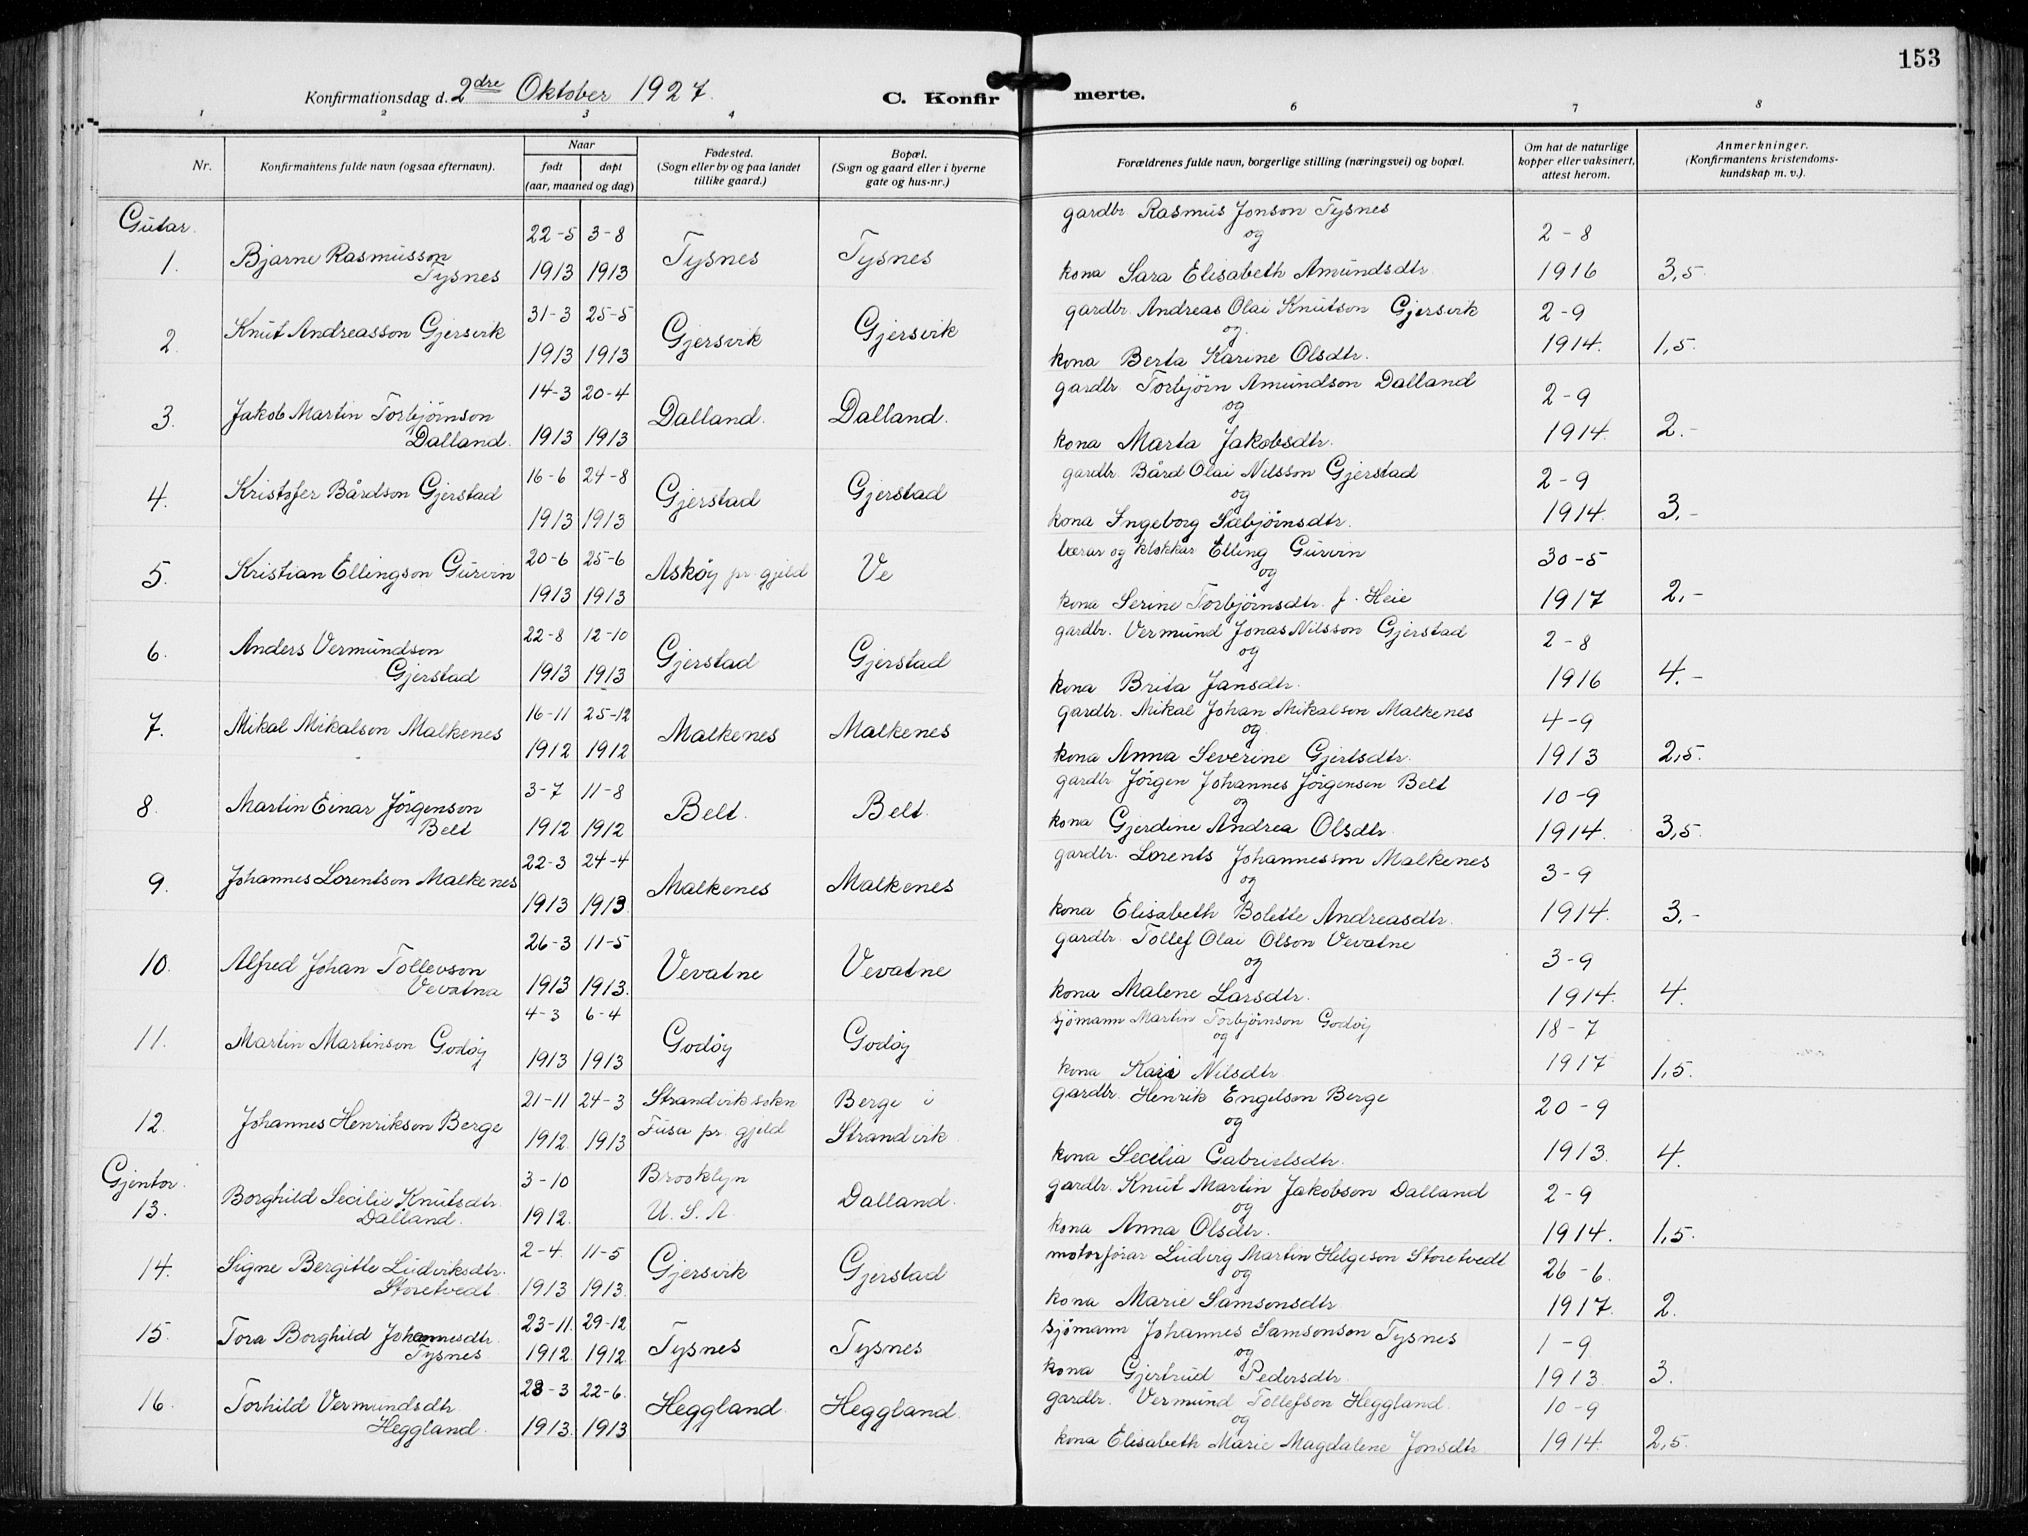 153
Konfirmationsdag d. 2dre Oktober 1927. C. Konfirmerte.
1 2 3 4 6 7 8
Nr. Konfirmantens fulde navn (ogsaa efternavn). Naar født døpt (aar, maaned og dag) Fødested. (Sogn eller by og paa landet tillike gaard.) Bopæl. (Sogn og gaard eller i byerne gate og hus-nr.) Forældrenes fulde navn, borgerlige stilling (næringsvei) og bopæl. Om hat de naturlige kopper eller vaksinert, attest herom. Anmerkninger. (Konfirmantens kristendomskundskap m. v.).
Gutar.
1. Bjarne Rasmusson Tysnes 22-5 1913 3-8 1913 Tysnes Tysnes gardbr Rasmus Jonson Tysnes og kona Sara Elisabeth Amundsdtr. 2-8 1916 3,5
2. Knut Andreasson Gjersvik 31-3 1913 25-5 1913 Gjersvik Gjersvik gardbr. Andreas Olai Knutson Gjersvik og. kona Berta Karine Olsdtr. 2-9 1914. 1,5.
3. Jakob Martin Torbjørnson Dalland. 14-3 1913 20-4 1913 Dalland. Dalland. gardbr. Torbjørn Amundson Dalland og kona Marta Jakobsdtr. 2-9 1914. 2.-
4. Kristofer Bårdson Gjerstad 16-6 1913 24-8 1913 Gjerstad Gjerstad gardbr. Bård Olai Nilsson Gjerstad og kona Ingeborg Sæbjørnsdtr. 2-9 1914. 3,-
5. Kristian Ellingson Gurvin 20-6 1913 25-6 1913 Askøy pr. gjeld Ve lærar og klokkar Elling Gurvin og kona Serine Torbjørnsdtr. f. Heie 30-5 1917 2,-
6. Anders Vermundson Gjerstad 22-8 1913 12-10 1913 Gjerstad Gjerstad gardbr. Vermund Jonas Nilsson Gjerstad og kona Brita Jansdtr. 2-8 1916 4.-
7. Mikal Mikalson Malkenes 16-11 1912 25-12 1912 Malkenes Malkenes gardbr. Mikal Johan Mikalson Malkenes og. kona Anna Severine Gjertsdtr. 4-9 1913 2,5.
8. Martin Einar Jørgenson Belt 3-7 1912 11-8 1912 Belt. Belt. gardbr Jørgen Johannes Jørgenson Belt og kona Gjerdine Andrea Olsdtr. 10-9 1914. 3,5.
9. Johannes Lorentson Malkenes 22-3 1913 24-4 1913 Malkenes Malkenes gardbr. Lorents Johannesson Malkenes og kona Elisabeth Bolette Andreasdtr. 3-9 1914. 3,-
10. Alfred Johan Tollevson Vevatna 26-3 1913 11-5 1913. Vevatne Vevatne gardbr. Tollef Olai Olson Vevatne og kona Malene Larsdtr. 3-9 1914. 4.
11. Martin Martinson Godøy 4-3 1913 6-4 1913 Godøy Godøy sjømann Martin Torbjørnson Godøy og kona Kari Nilsdtr. 18-7 1917 1,5.
12. Johannes Henrikson Berge 21-11 1912 24-3 1913 Strandvik sokn Fusa pr. gjeld Berge i Strandvik gardbr. Henrik Engelson Berge og kona Secilia Gabrielsdtr. 20-9 1913. 4.
Gjentor.
13. Borghild Secilie Knutsdtr. Dalland. 3-10 1912. Brooklyn U. S. A. Dalland. gardbr. Knut Martin Jakobson Dalland og kona Anna Olsdtr. 2-9 1914. 1,5.
14. Signe Bergitte Ludviksdtr. Storetvedt 2-4 1913 11-5 1913. Gjersvik Gjerstad motorførar Ludvig Martin Helgeson Storetvedt og kona Marie Samsonsdtr 26-6. 1917. 2.
15. Tora Borghild Johannesdtr. Tysnes 23-11. 1912 29-12 1912 Tysnes Tysnes sjømann Johannes Samsonson Tysnes og kona Gjertrud Pedersdtr. 1-9 1913. 3.
16. Torhild Vermundsdtr. Heggland. 28-3 1913. 22-6. 1913 Heggland. Heggland. gardbr. Vermund Tollefson Heggland. og kona Elisabeth Marie Magdalene Jonsdtr. 10-9 1914. 2,5.